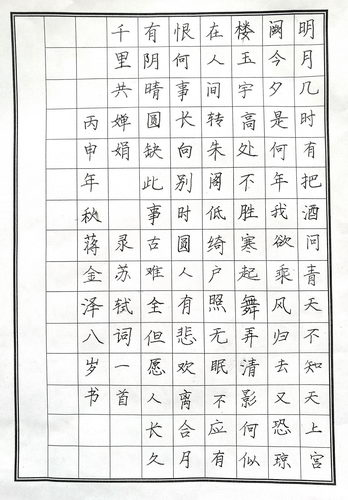 明月几时有把酒问青天不知天上宫
阙今夕是何年我欲乘风归去又恐琼
楼玉宇高处不胜寒起舞弄清影何似
在人间转朱阁低绮户照无眠不应有
恨何事长向别时圆人有悲欢离合月
有阴晴圆缺此事古难全但愿人长久
千里共婵娟 录苏轼词一首
丙申年秋蒋金泽八岁书